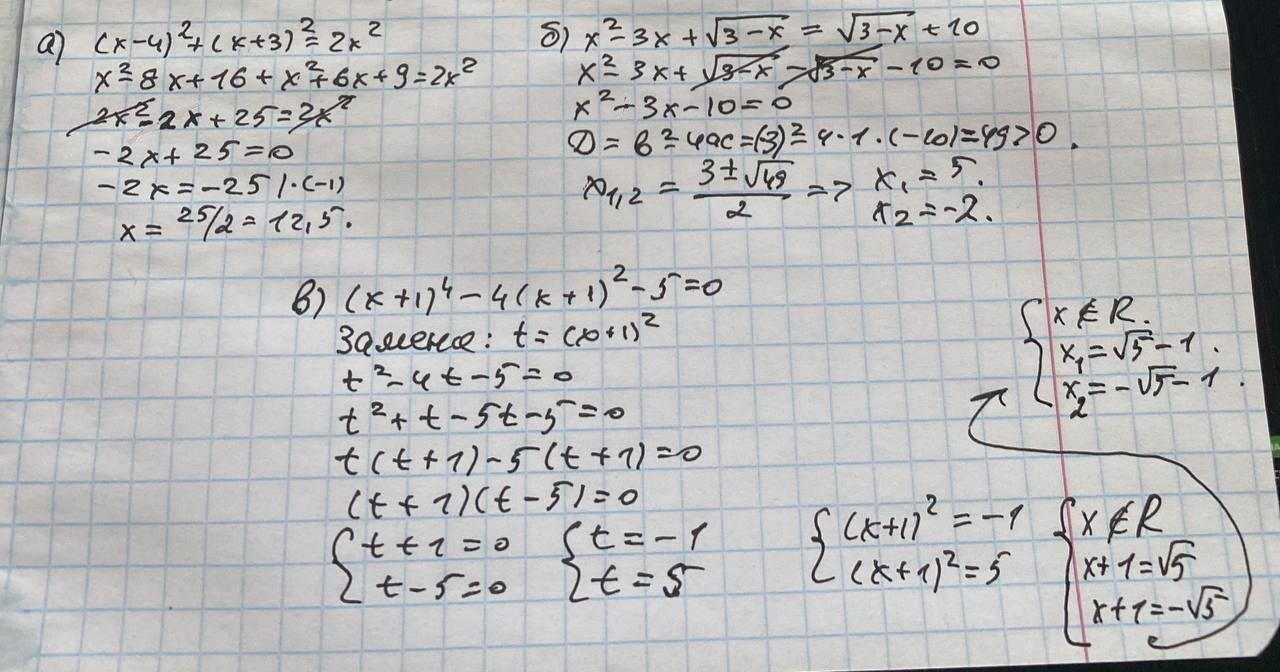 а) (x-4)²+(x+3)²=2x²
x²-8x+16+x²+6x+9=2x²
2x²-2x+25=2x²
-2x+25=0
-2x=-25 |·(-1)
x=25/2=12,5.
б) x²-3x+√3-x = √3-x+10
x²-3x+√3-x-√3-x-10=0
x²-3x-10=0
D=b²-4ac=(3)²-4·1·(-10)=49>0.
x1,2 = (3±√49)/2 => x₁=5.
x₂=-2.
в) (x+1)⁴-4(x+1)²-5=0
Замена: t=(x+1)²
t²-4t-5=0
t²+t-5t-5=0
t(t+1)-5(t+1)=0
(t+1)(t-5)=0
{t+1=0
t-5=0
{t=-1
t=5
{(x+1)²=-1
(x+1)²=5
{x∉R
x+1=√5
x+1=-√5
{x∉R.
x₁=√5-1.
x₂=-√5-1.